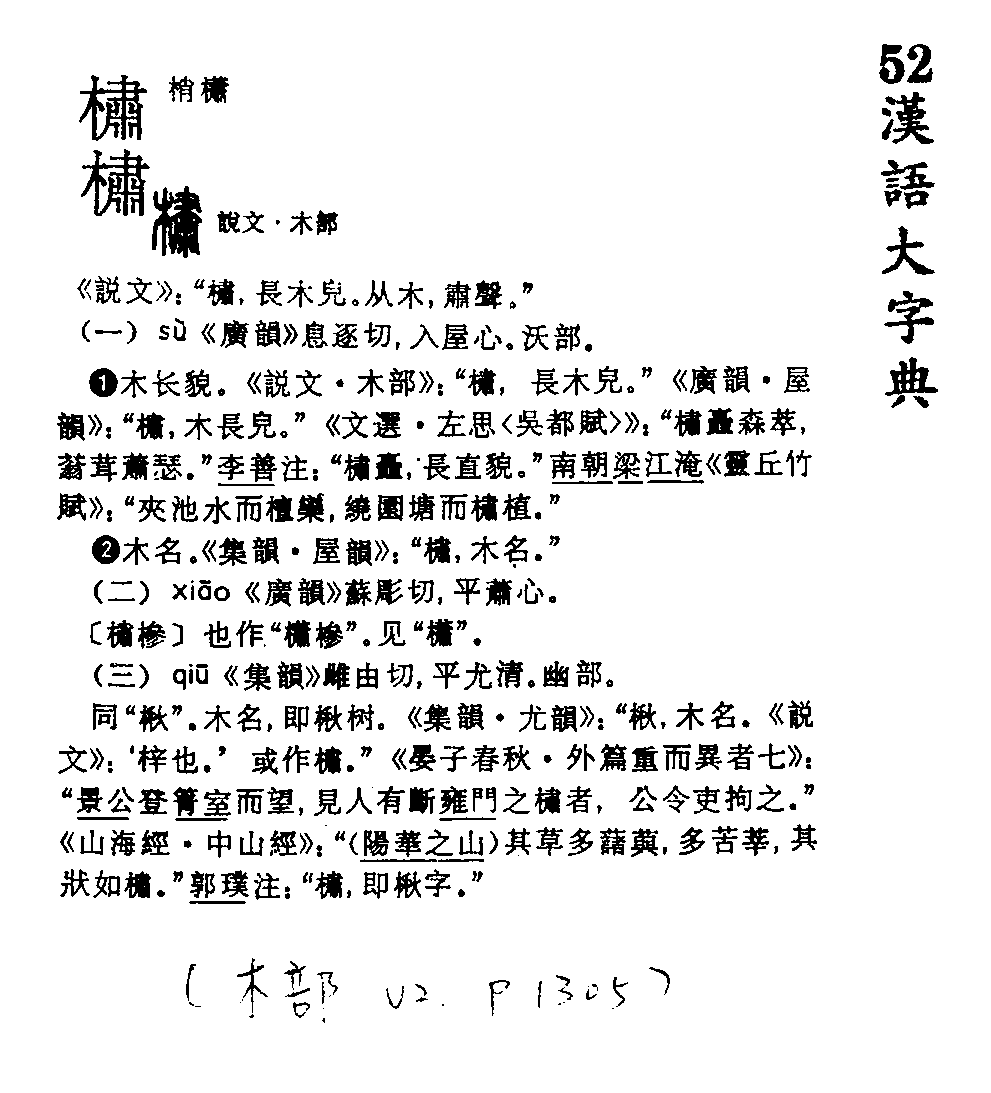 52漢語大字典
橚 梢櫹
橚 橚 說文·木部
《説文》：“橚，長木皃。从木，肅聲。”
（一）sù《廣韻》息逐切，入屋心。沃部。
❶木长貌。《説文·木部》：“橚，長木皃。”《廣韻·屋
韻》：“橚，木長皃。”《文選·左思〈吳都賦〉》：“橚矗森萃，
蓊茸蕭瑟。”李善注：“橚矗，長直貌。”南朝梁江淹《靈丘竹
賦》：“夾池水而檀欒，繞園塘而橚植。”
❷木名。《集韻·屋韻》：“橚，木名。”
（二）xiāo《廣韻》蘇彫切，平蕭心。
〔橚槮〕也作“櫹槮”。见“櫹”。
（三）qiū《集韻》雌由切，平尤清。幽部。
同“楸”。木名，即楸树。《集韻·尤韻》：“楸，木名。《說
文》：‘梓也。’或作橚。”《晏子春秋·外篇重而異者七》：
“景公登箐室而望，見人有斷雍門之橚者，公令吏拘之。”
《山海經·中山經》：“（陽華之山）其草多藷藇，多苦莘，其
狀如橚。”郭璞注：“橚，即楸字。”
（木部 V2. P1305）